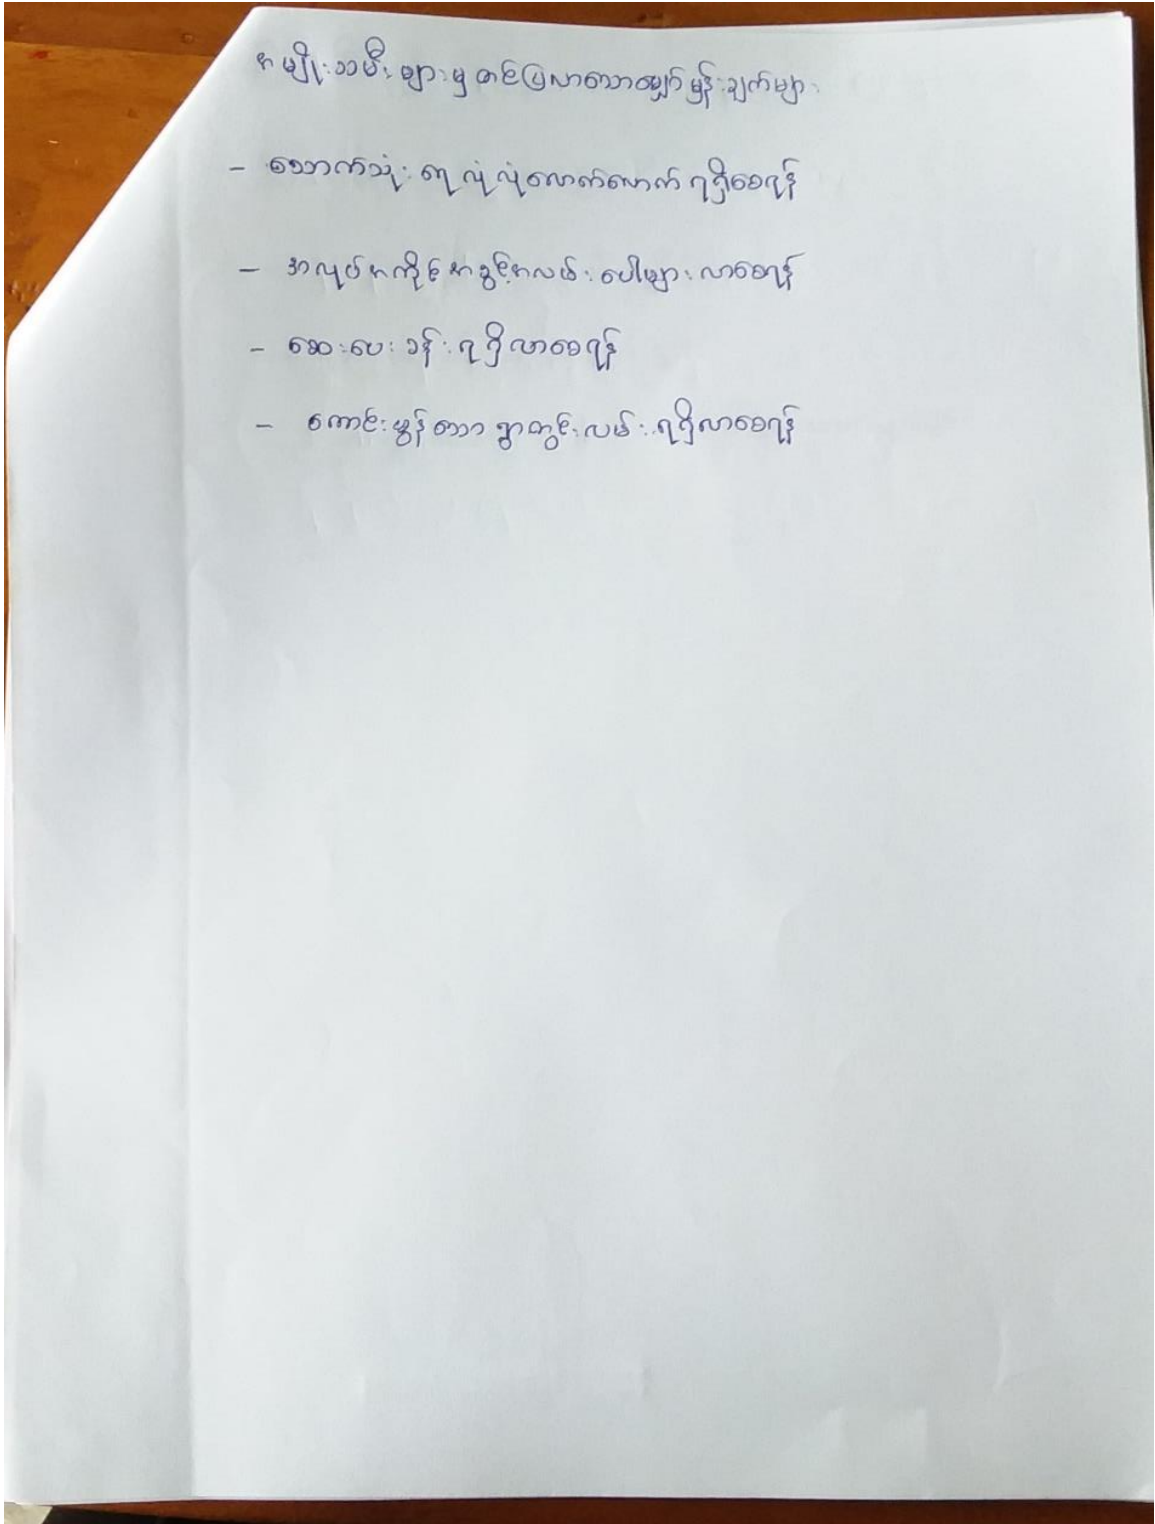 အမျိုးသမီးများမှ တင်ပြလာသောမျှော်မှန်းချက်များ
- သောက်သုံးရေ လုံလုံလောက်လောက် ရရှိစေရန်
- အလုပ်အကိုင်အခွင့်အလမ်း ပေါများလာစေရန်
- ဆေးပေးခန်း ရရှိလာစေရန်
- ကောင်းမွန်သော ရွာတွင်းလမ်း ရရှိလာစေရန်